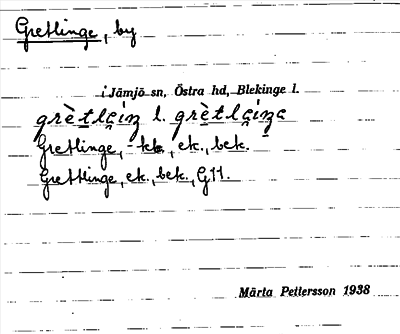 Gretlinge, by
i Jämjö sn, Östra hd, Blekinge l.
grètlęiŋ l. grètlęiŋę
Gretlinge, ek., bek.
Grettlinge, ek., bek., G11.
Märta Pettersson 1938